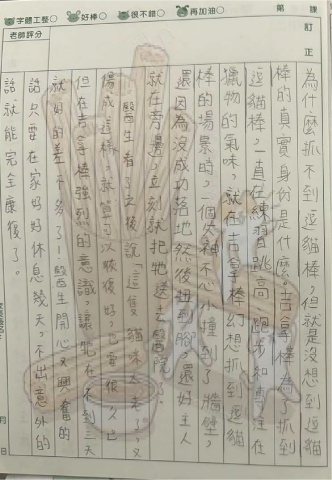 字體工整 好棒 很不錯 再加油 第 課
老師評分
訂正
為什麼抓不到逗貓棒，但就是沒想到逗貓
棒的真實身份是什麼。吉拿棒為了抓到
逗貓棒，一直在練習跳高、跑步和專注在
獵物的氣味，就在吉拿棒幻想抓到逗貓
棒的場景時，一個大神不心小撞到了牆壁，
還因為沒成功落地然後扭到腳，還好主人
就在旁邊，立刻就把牠送去醫院。
醫生看了之後說：「這隻貓咪太老了，又
傷成這樣，就算可以恢復好，也要很久，
但在吉拿棒強烈的意識，讓牠在不到三天
就好的差不多了！醫生開心又興奮的
說只要在家好好休息幾天，不出意外的
話就能完全康復了。
月 日